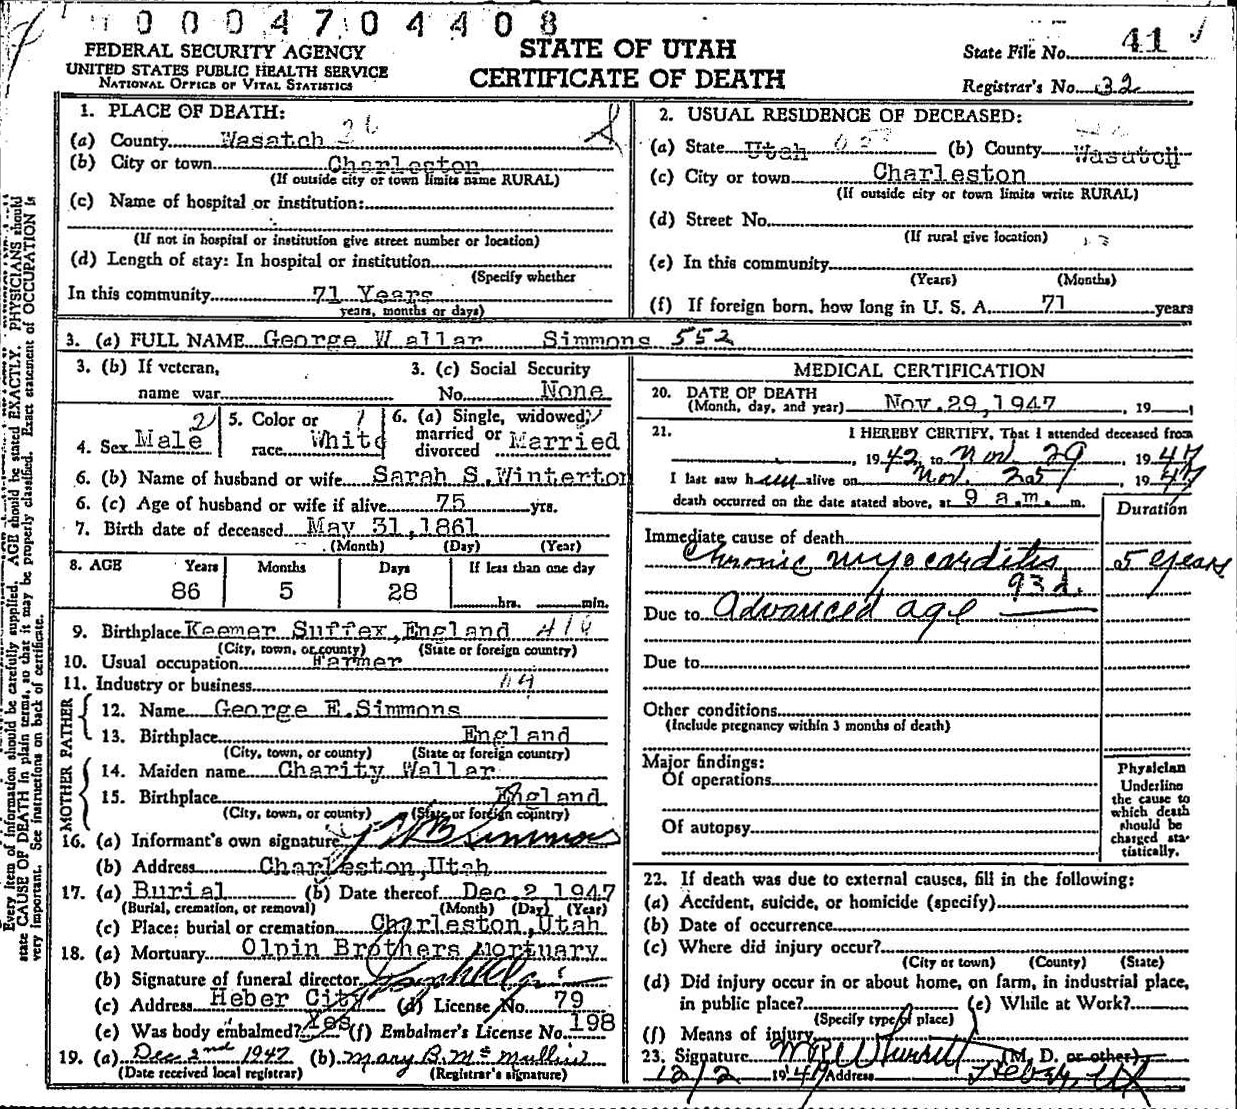 0004704408
FEDERAL SECURITY AGENCY
UNITED STATES PUBLIC HEALTH SERVICE
NATIONAL OFFICE OF VITAL STATISTICS
STATE OF UTAH
CERTIFICATE OF DEATH
State File No. 41
Registrar's No. 32
Every item of information should be carefully supplied. AGE should be stated EXACTLY. PHYSICIANS should
state CAUSE OF DEATH in plain terms, so that it may be properly classified. Exact statement of OCCUPATION is
very important. See instructions on back of certificate.
1. PLACE OF DEATH:
(a) County Wasatch 26
(b) City or town Charleston
(If outside city or town limits name RURAL)
(c) Name of hospital or institution:
(If not in hospital or institution give street number or location)
(d) Length of stay: In hospital or institution
(Specify whether
In this community 71 Years
years, months or days)
2. USUAL RESIDENCE OF DECEASED:
(a) State Utah (b) County Wasatch
(c) City or town Charleston
(If outside city or town limits write RURAL)
(d) Street No.
(If rural give location)
(e) In this community
(Years) (Months)
(f) If foreign born, how long in U. S. A. 71 years
3. (a) FULL NAME George W allar Simmons 552
3. (b) If veteran,
name war
3. (c) Social Security
No. None
4. Sex Male 2
5. Color or
race White 1
6. (a) Single, widowed,
married or
divorced Married
6. (b) Name of husband or wife Sarah S.Winterton
6. (c) Age of husband or wife if alive 75 yrs.
7. Birth date of deceased May 31,1861
(Month) (Day) (Year)
8. AGE Years Months Days If less than one day
86 5 28 hrs. min.
9. Birthplace Keemer Suffex,England
(City, town, or county) (State or foreign country)
10. Usual occupation Farmer
11. Industry or business
FATHER
12. Name George E.Simmons
13. Birthplace England
(City, town, or county) (State or foreign country)
MOTHER
14. Maiden name Charity Wallar
15. Birthplace England
(City, town, or county) (State or foreign country)
16. (a) Informant's own signature Simmons
(b) Address Charleston,Utah
17. (a) Burial (b) Date thereof Dec 2 1947
(Burial, cremation, or removal) (Month) (Day) (Year)
(c) Place: burial or cremation Charleston,Utah
18. (a) Mortuary Olpin Brothers Mortuary
(b) Signature of funeral director
(c) Address Heber City (d) License No. 79
(e) Was body embalmed? Yes (f) Embalmer's License No. 198
19. (a) Dec 2nd 1947 (b) Mary B. McMullin
(Date received local registrar) (Registrar's signature)
MEDICAL CERTIFICATION
20. DATE OF DEATH
(Month, day, and year) Nov.29,1947, 19
21. I HEREBY CERTIFY, That I attended deceased from
, 1942, to Nov. 29, 1947
I last saw him alive on Nov. 25, 1947
death occurred on the date stated above, at 9 a.m. m.
Duration
Immediate cause of death
Chronic myocarditis 5 years
93d.
Due to Advanced age
Due to
Other conditions
(Include pregnancy within 3 months of death)
Major findings:
Of operations
Of autopsy
Physician
Underline
the cause to
which death
should be
charged sta-
tistically.
22. If death was due to external causes, fill in the following:
(a) Accident, suicide, or homicide (specify)
(b) Date of occurrence
(c) Where did injury occur?
(City or town) (County) (State)
(d) Did injury occur in or about home, on farm, in industrial place,
in public place? (e) While at Work?
(Specify type of place)
(f) Means of injury
23. Signature (M. D. or other)
12/2 1947 Address Heber, Ut